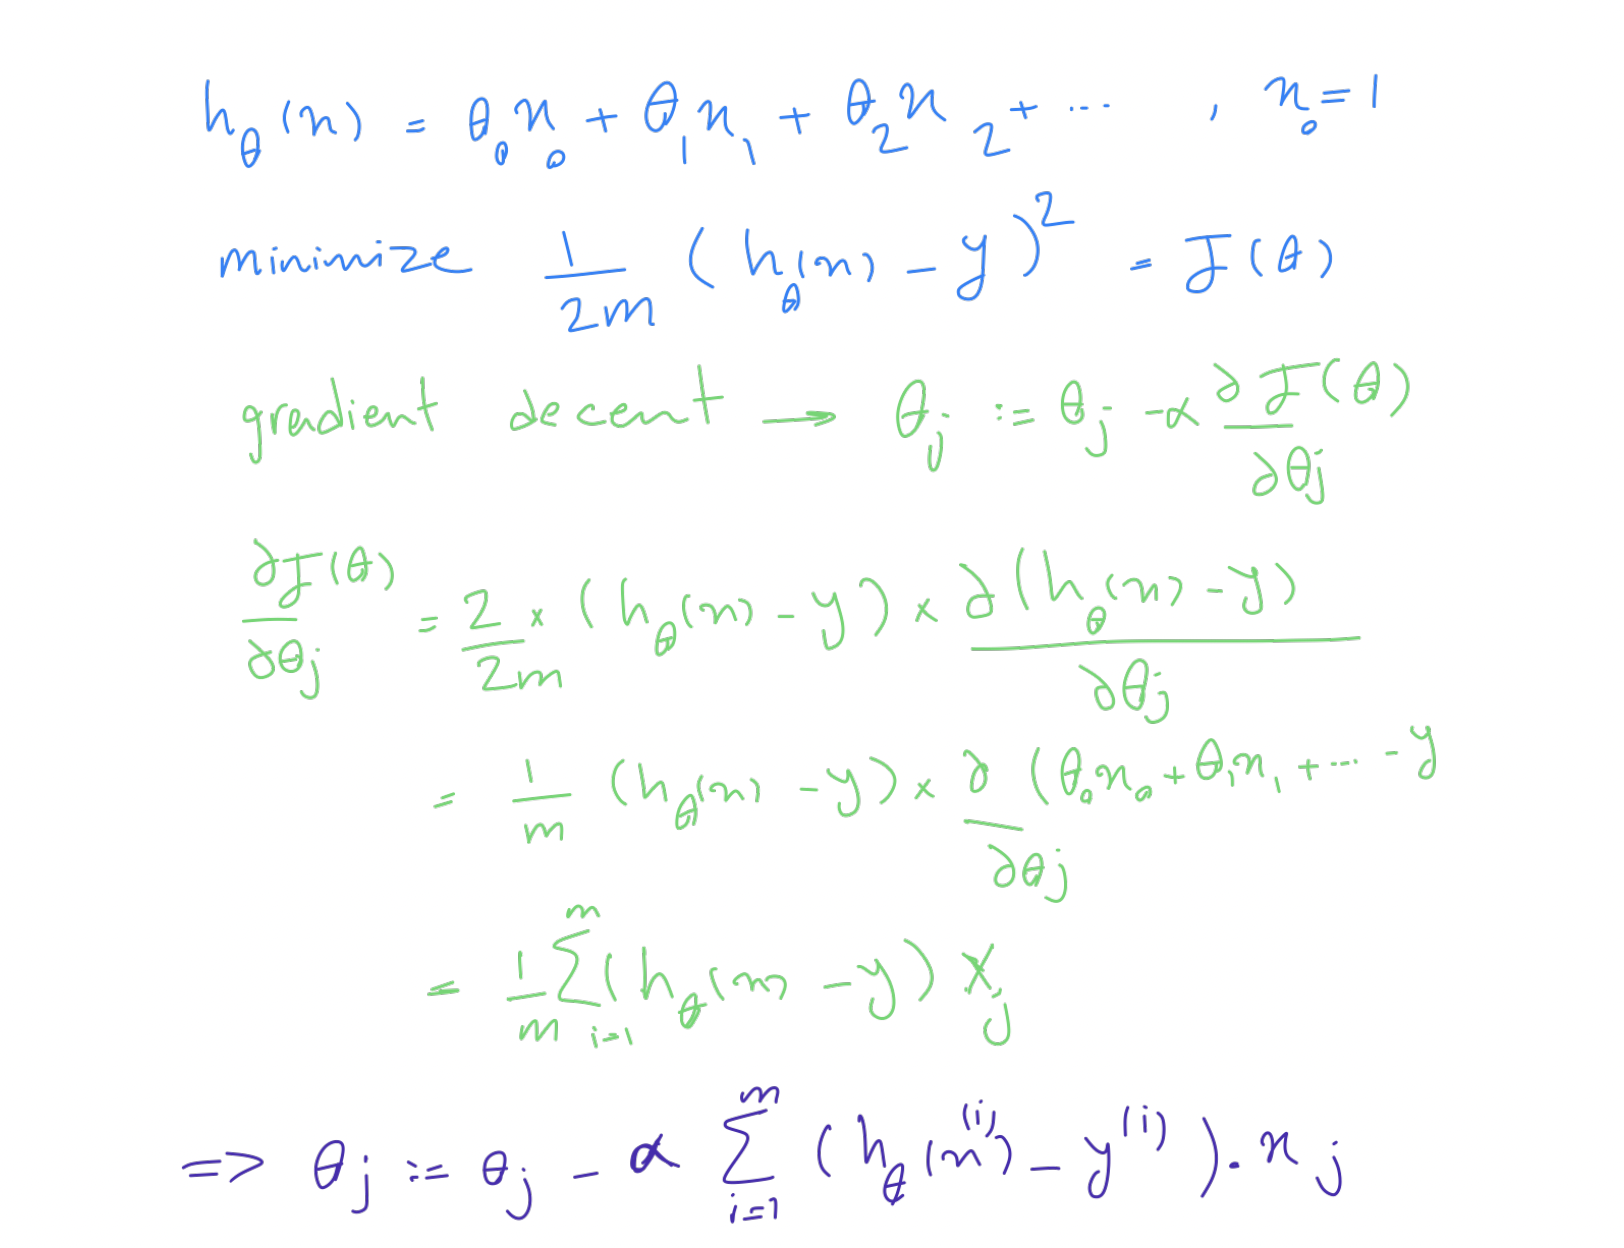 h_θ(x) = θ₀x₀ + θ₁x₁ + θ₂x₂ + ... , x₀ = 1
minimize 1/2m (h_θ(x) - y)² = J(θ)
gradient decent → θ_j := θ_j - α ∂J(θ)/∂θ_j
∂J(θ)/∂θ_j = 2/2m × (h_θ(x) - y) × ∂(h_θ(x) - y)/∂θ_j
= 1/m (h_θ(x) - y) × ∂/∂θ_j (θ₀x₀ + θ₁x₁ + ... - y
= 1/m Σ_{i=1}^{m} (h_θ(x) - y) x_j
=> θ_j := θ_j - α Σ_{i=1}^{m} (h_θ(x^{(i)}) - y^{(i)}) . x_j